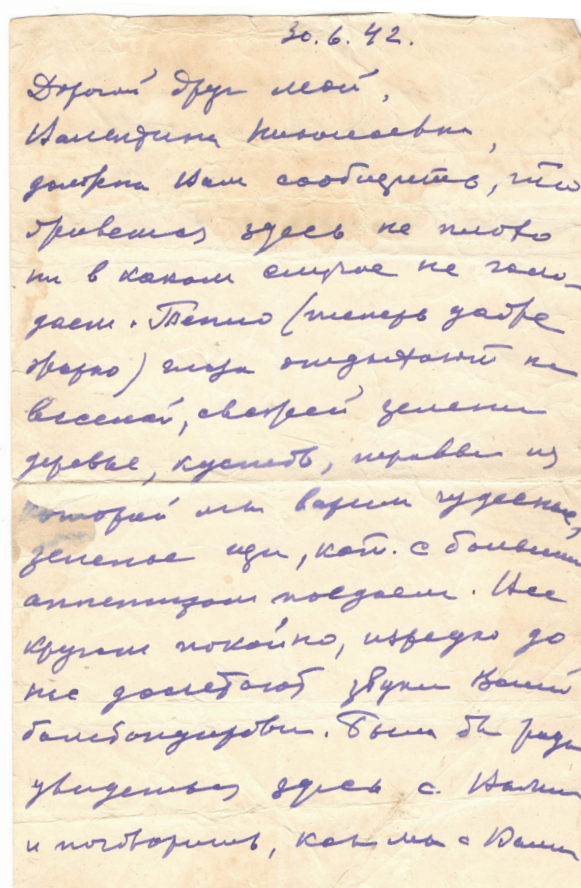 30.6.42.
Дорогой друг мой,
Валентина Николаевна,
должна Вам сообщить, что
живется здесь не плохо
ни в каком случае не голо-
даем. Тепло (теперь даже
жарко) глаза отдыхают на
веселой, свежей зелени
деревье, кустов, травы из
которой мы варим чудесные,
зеленые щи, кот. с большим
аппетитом поедаем. Все
кругом покойно, изредка до
нас долетают звуки Вашей
бомбондировки. Была бы рада
увидеться здесь с Вами
и поговорить, как мы с Вами